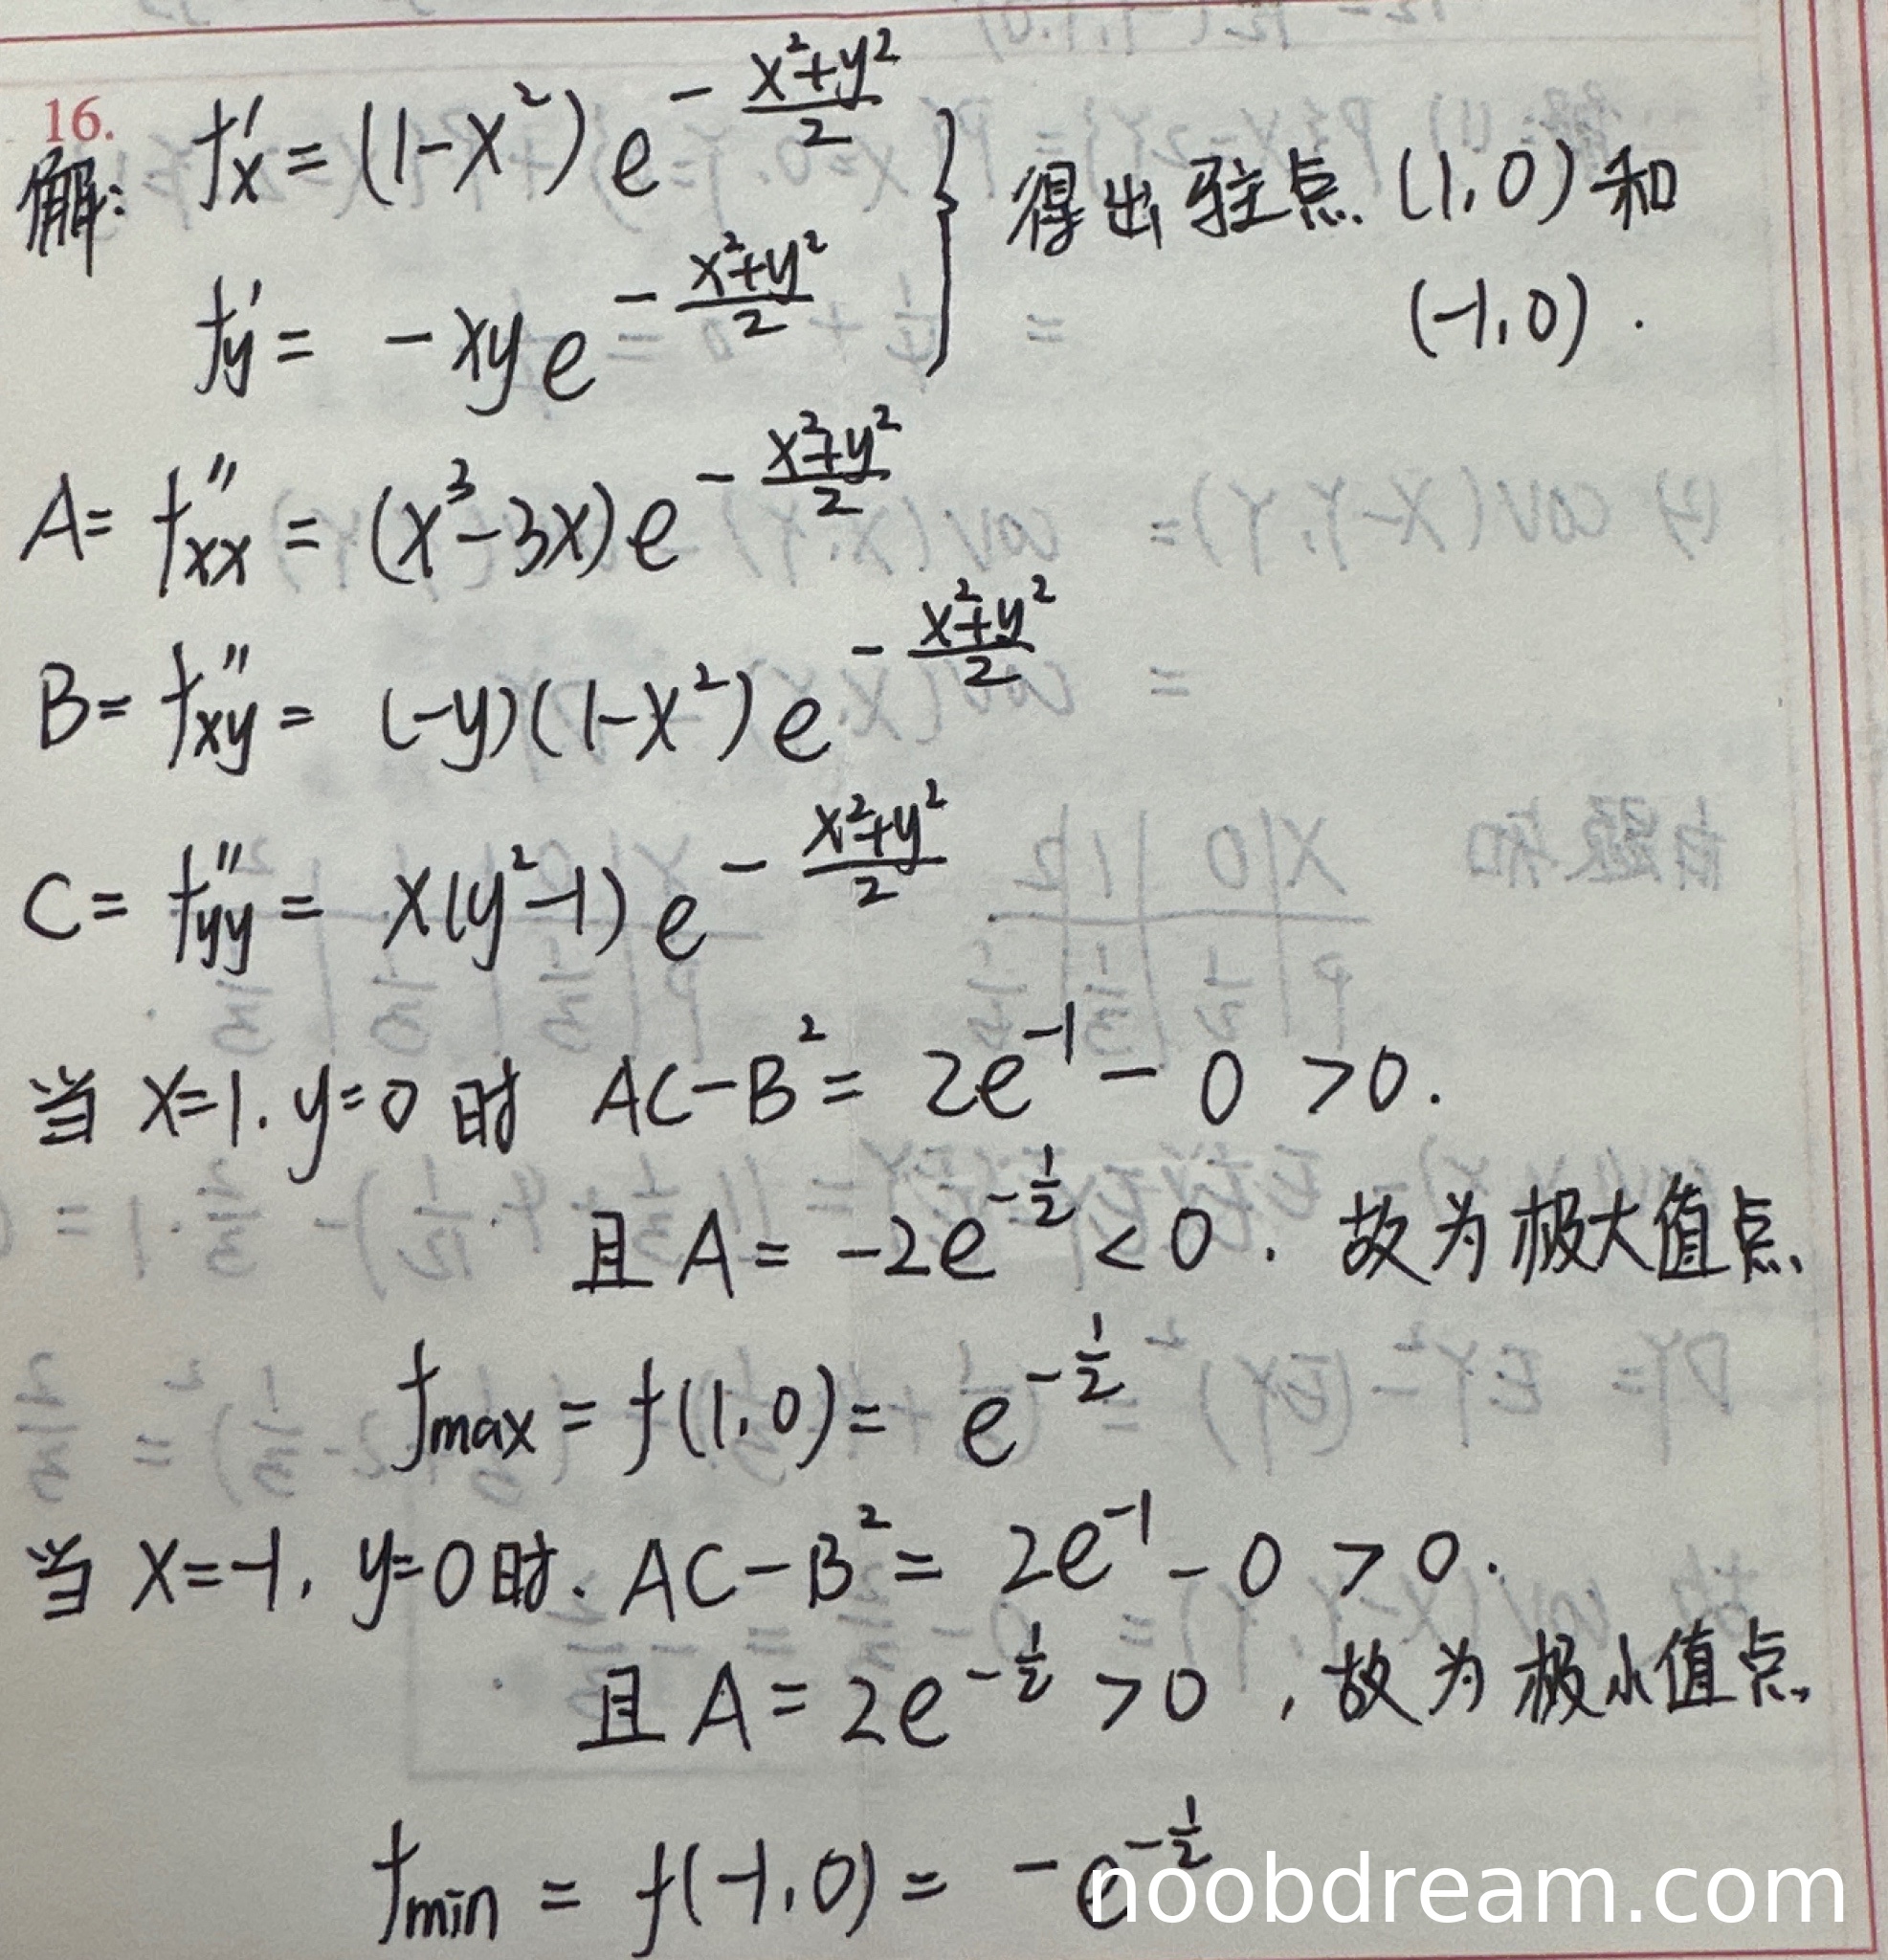 16.
解: f'x = (1-x²) e^(-(x²+y²)/2) } 得出驻点 (1,0) 和
f'y = -xy e^(-(x²+y²)/2) (-1,0).
A= f''xx = (x³-3x) e^(-(x²+y²)/2)
B= f''xy = (-y)(1-x²) e^(-(x²+y²)/2)
C= f''yy = x(y²-1) e^(-(x²+y²)/2)
当 x=1, y=0 时 AC-B² = 2e^(-1) - 0 >0.
且 A = -2e^(-1/2) < 0. 故为极大值点.
fmax = f(1,0) = e^(-1/2)
当 x=-1, y=0 时. AC-B² = 2e^(-1) - 0 > 0.
且 A = 2e^(-1/2) >0, 故为极小值点.
fmin = f(-1,0) = -e^(-1/2)
noobdream.com